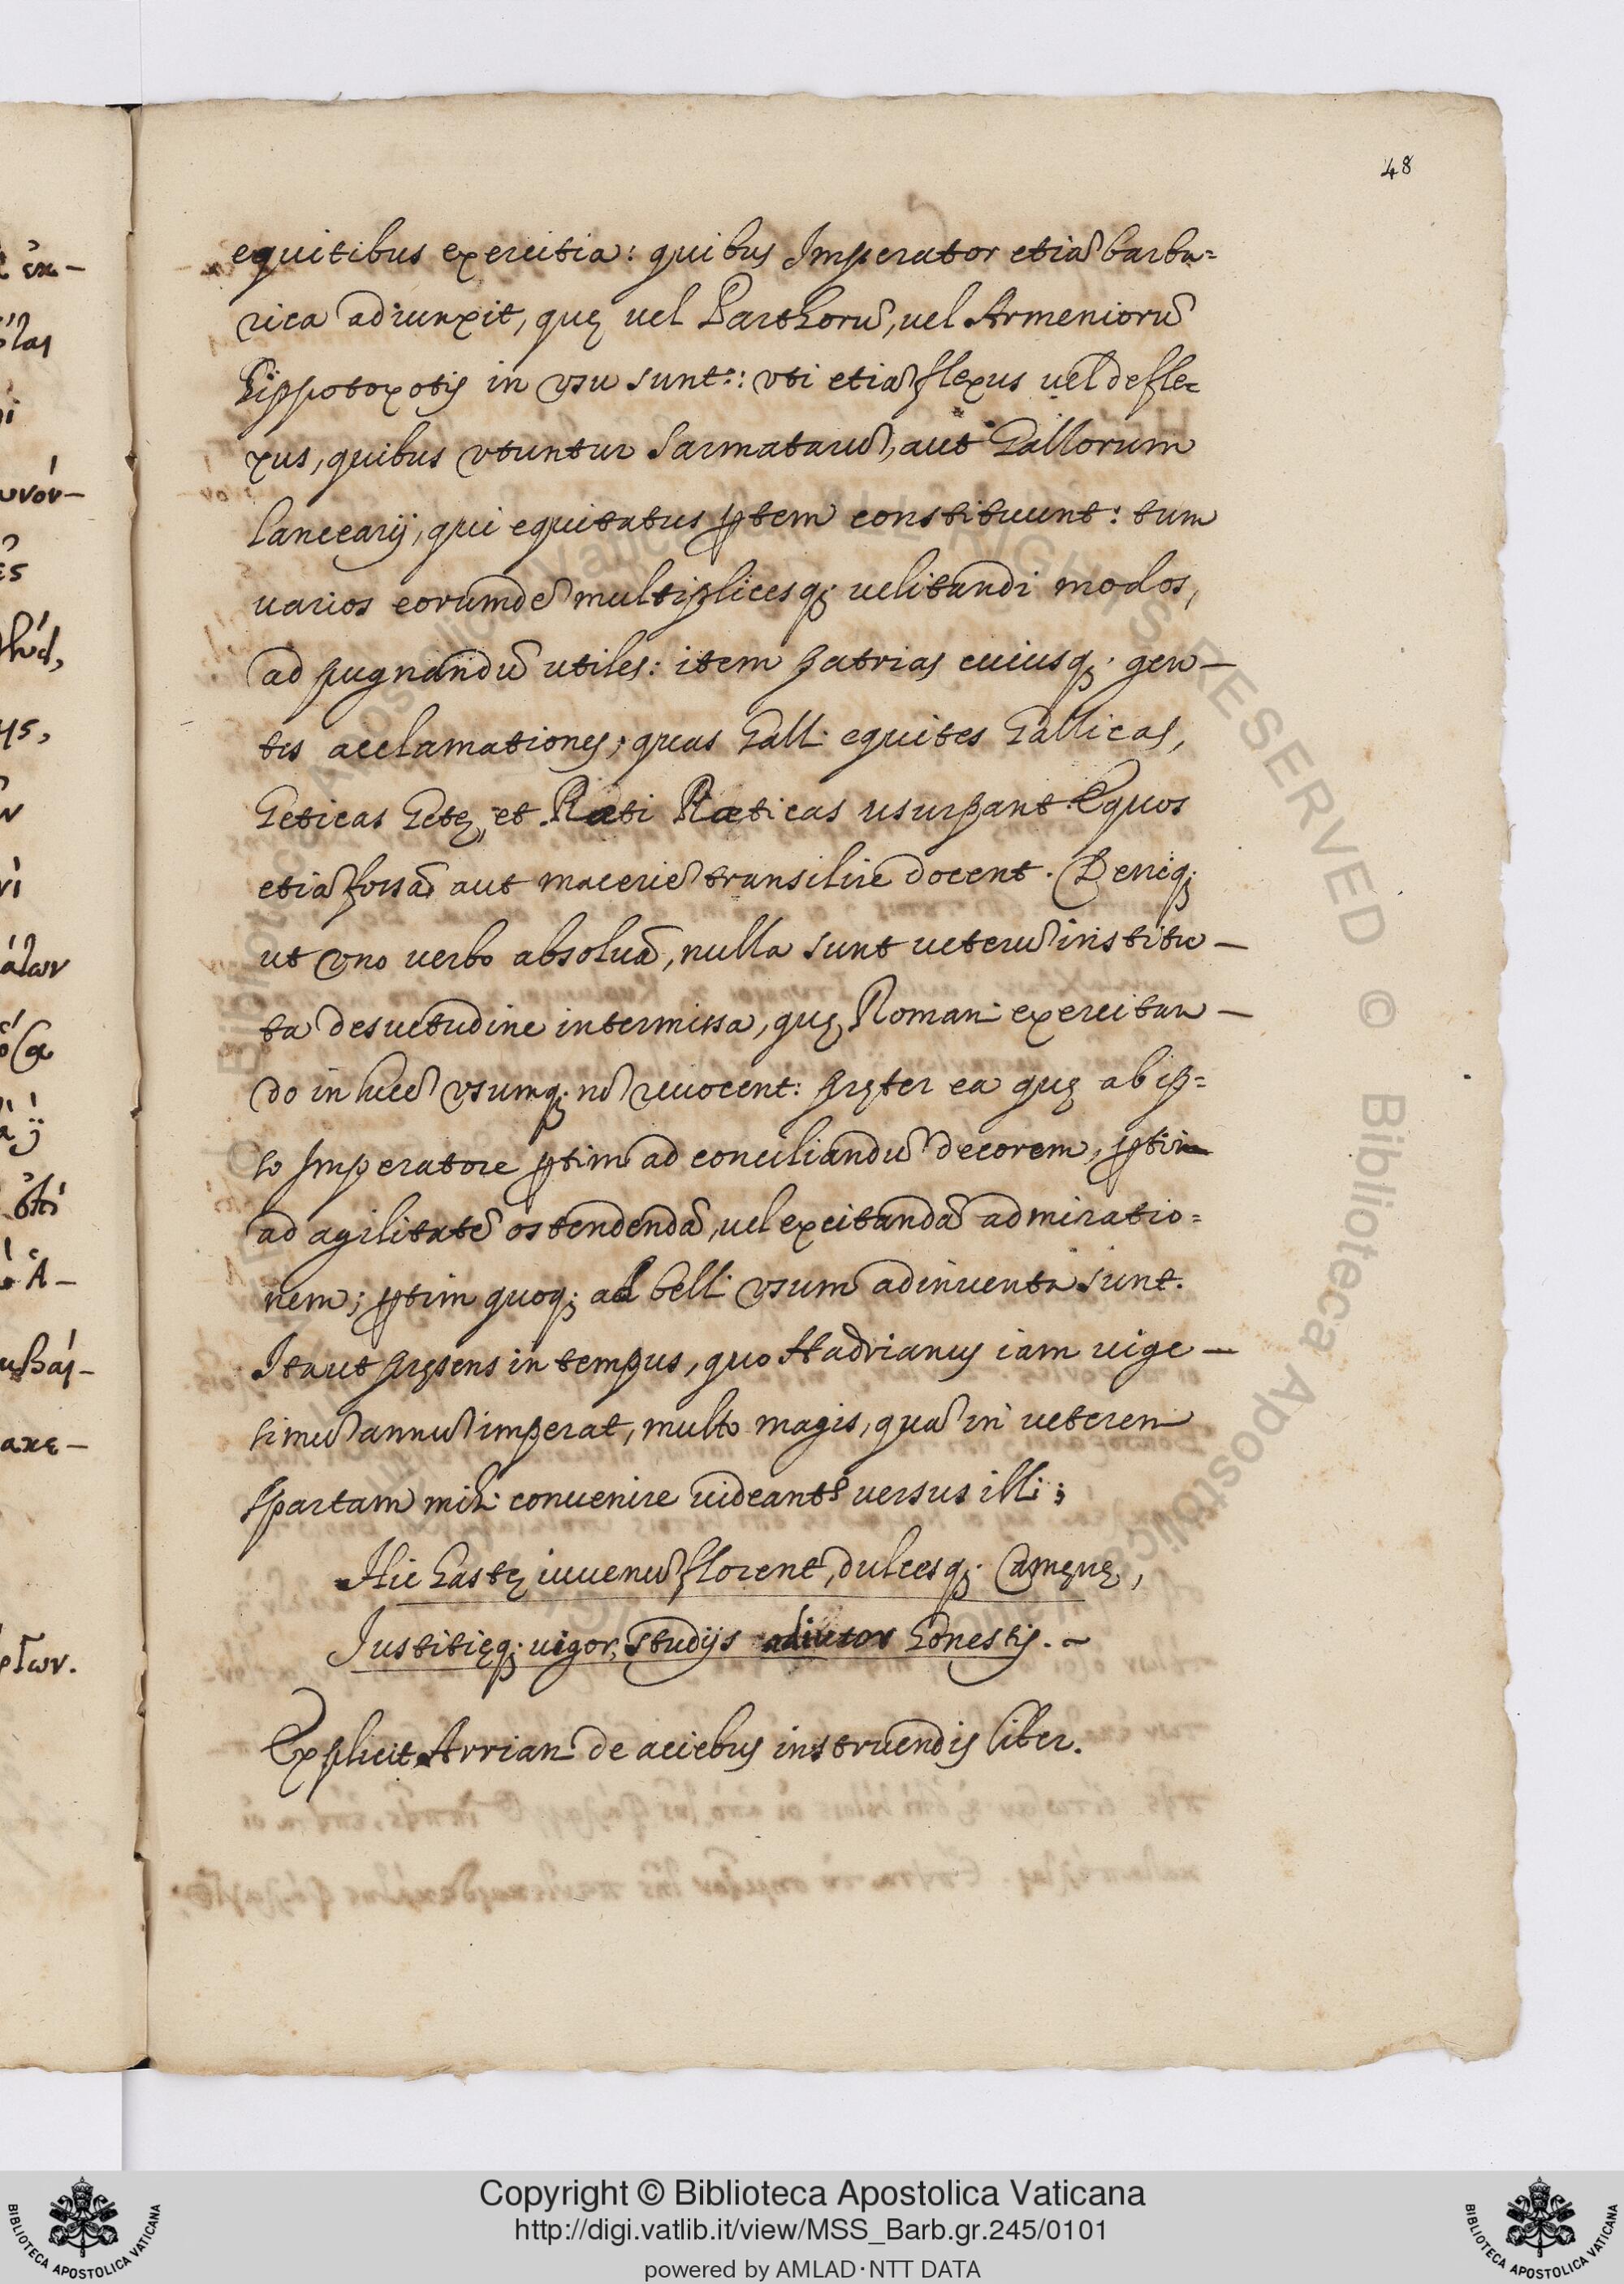 48
equitibus exercitia: quibus Imperator etiã barba=
rica adiunxit, quę uel Parthorũ, uel Armeniorũ
hippotoxotis in vsu sunt: vti etiã flexus uel defle=
xus, quibus vtuntur Sarmatarũ, aut Gallorum
lancearij, qui equitatus ꝑtem constituunt: tum
varios eorumdẽ multiplicesq; uelitandi modos,
ad pugnandũ utiles: item patrias cuiusq; gen-
tis acclamationes; quas Gall. equites Gallicas,
Geticas Getę, et Ræti Ræticas usurpant. Equos
etiã fossã aut maceriẽ transilire docent. Deniq;
ut vno uerbo absoluã, nulla sunt ueterũ institu-
ta desuetudine intermissa, quę Roman. exercitan-
do in lucẽ vsumq; nõ reuocent: pręter ea quę ab ip=
so Imperatore ꝑtim ad conciliandũ decorem, ꝑtim
ad agilitatẽ ostendendã, uel excitandã admiratio=
nem; ꝑtim quoq; ad bell. vsum adinuenta sunt.
Ita ut pręsens in tempus, quo Hadrianus iam uige-
simũ annũ imperat, multo magis, quã in ueterem
Spartam mih. convenire uideantr versus illi;
Hic hastę iuuenũ florent, dulcesq; Camęnę,
Iustitięq; uigor, studijs adiutor honestis. ~
Explicit Arrian. de aciebus instruendis liber.
© Biblioteca Apostolica Vaticana ALL RIGHTS RESERVED © Biblioteca Apostolica
Copyright © Biblioteca Apostolica Vaticana
http://digi.vatlib.it/view/MSS_Barb.gr.245/0101
powered by AMLAD·NTT DATA
BIBLIOTECA APOSTOLICA VATICANA
BIBLIOTECA APOSTOLICA VATICANA